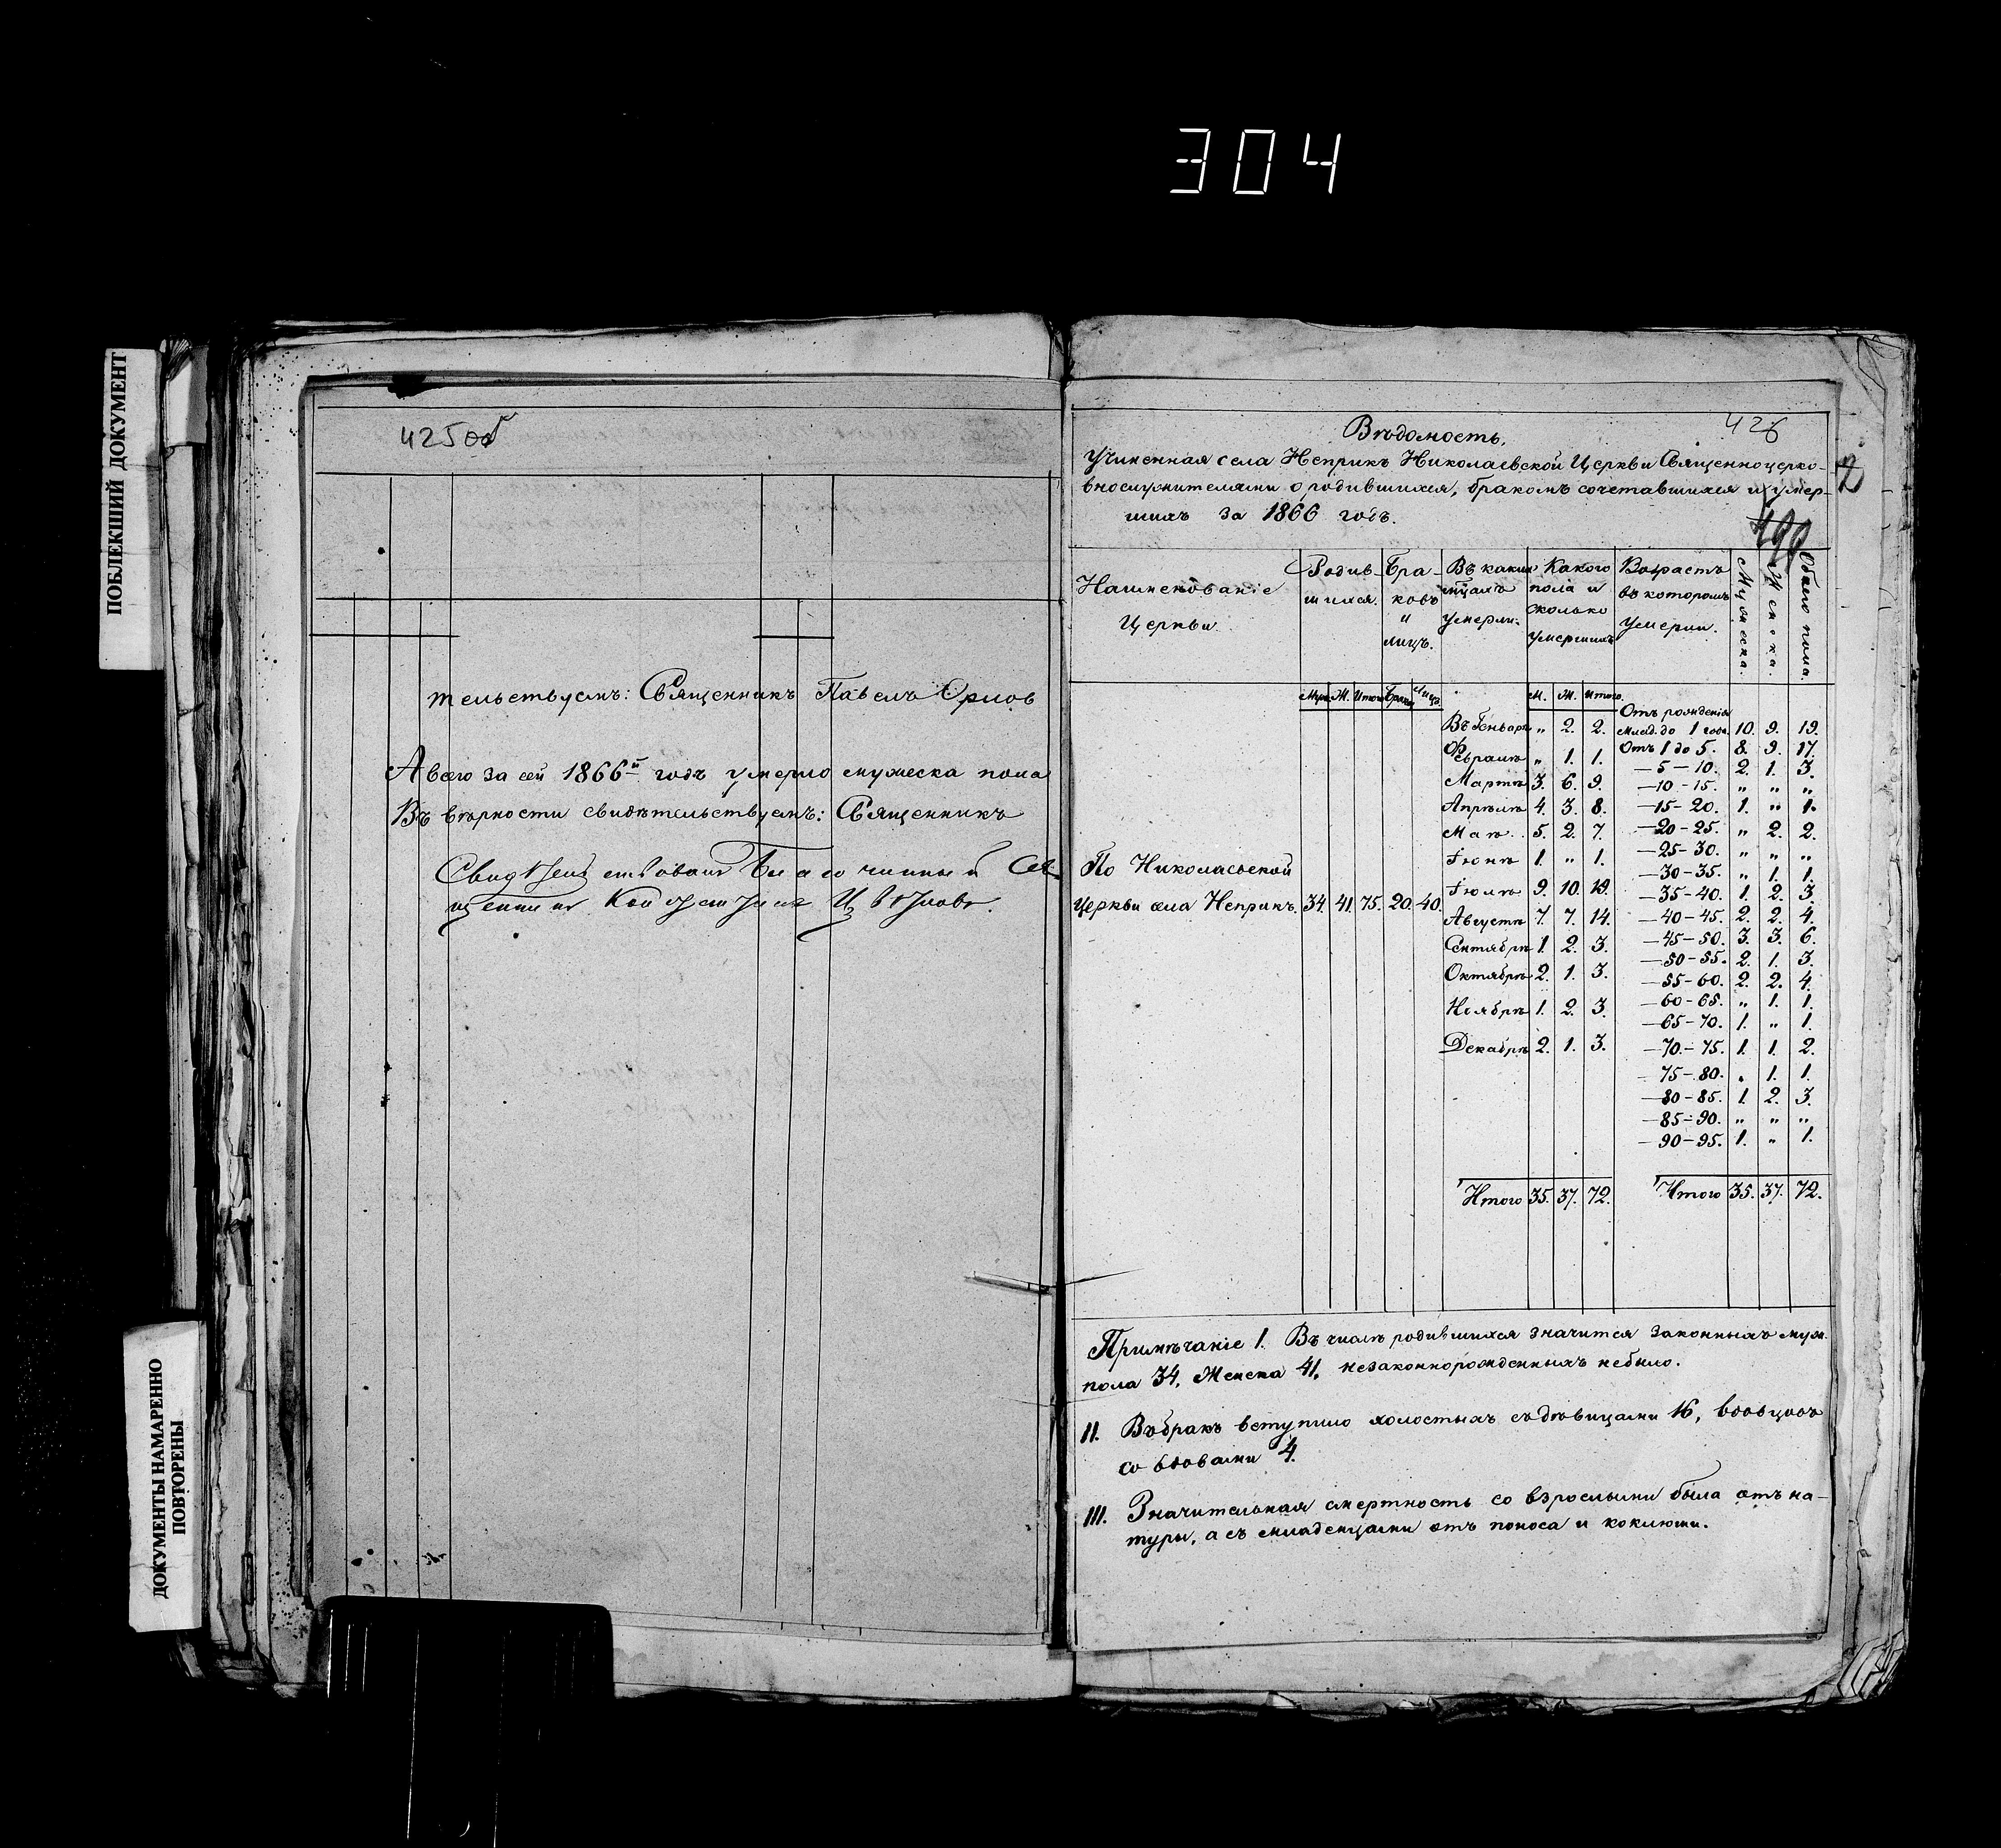 304
ПОБЛЕКШИЙ ДОКУМЕНТ
ДОКУМЕНТЫ НАМАРЕННО
ПОВТОРЕНЫ
425 об
тельствуемъ: Священникъ Павелъ Орлов
А всего за сей 1866й годъ умерло мужеска пола
Въ верности свидѣтельствуемъ: Священникъ
Свидѣтельствовалъ Благочинный Свя
щенникъ Константинъ Цвѣтковъ.
426
Вѣдомость,
Учиненная села Неприкъ Николаевской Церкви Священноцерко-
внослужителями о родившихся, бракомъ сочетавшихся и умер-
шихъ за 1866 годъ.
Наименованіе Церкви.
Родив-шихся.
Бра-ковъ и лицъ.
Въ какихъ мцахъ умерли.
Какого пола и сколько умершихъ
Возрастъ въ которомъ умерли.
Мужеска.
Женска.
Обоего пола.
Муж. Ж. Итого Браков Лицъ. М. Ж. Итого.
По Николаевской
Церкви села Неприкъ. 34. 41. 75. 20. 40.
Въ Генварѣ „ 2. 2.
Февралѣ „ 1. 1.
Мартѣ 3. 6. 9.
Апрѣлѣ 4. 3. 8.
Маѣ. 5. 2. 7.
Іюнѣ 1. „ 1.
Іюлѣ 9. 10. 19.
Августѣ 7. 7. 14.
Сентябрѣ 1. 2. 3.
Октябрѣ 2. 1. 3.
Ноябрѣ 1. 2. 3.
Декабрѣ 2. 1. 3.
Итого 35. 37. 72.
Отъ рожденія
млад. до 1 года. 10. 9. 19.
Отъ 1 до 5. 8. 9. 17.
—5—10. 2. 1. 3.
—10-15. „ „ „
—15-20. 1. „ 1.
—20-25. „ 2. 2.
—25-30. „ „ „
—30-35. „ 1. 1.
—35-40. 1. 2. 3.
—40-45. 2. 2. 4.
—45-50. 3. 3. 6.
—50-55. 2. 1. 3.
—55-60. 2. 2. 4.
—60-65. „ 1. 1.
—65-70. 1. „ 1.
—70-75. 1. 1. 2.
75-80. „ 1. 1.
—80-85. 1. 2. 3.
—85-90. „ „ „
—90-95. 1. „ 1.
Итого 35. 37. 72.
Примѣчаніе I. Въ числѣ родившихся значится законныхъ муж.
пола 34, Женска 41, незаконнорожденныхъ небыло.
II. Въ бракъ вступило холостыхъ съ дѣвицами 16, вдовцовъ
со вдовами 4.
III. Значительная смертность со взрослыми была отъ на-
туры, а съ младенцами отъ поноса и коклюши.